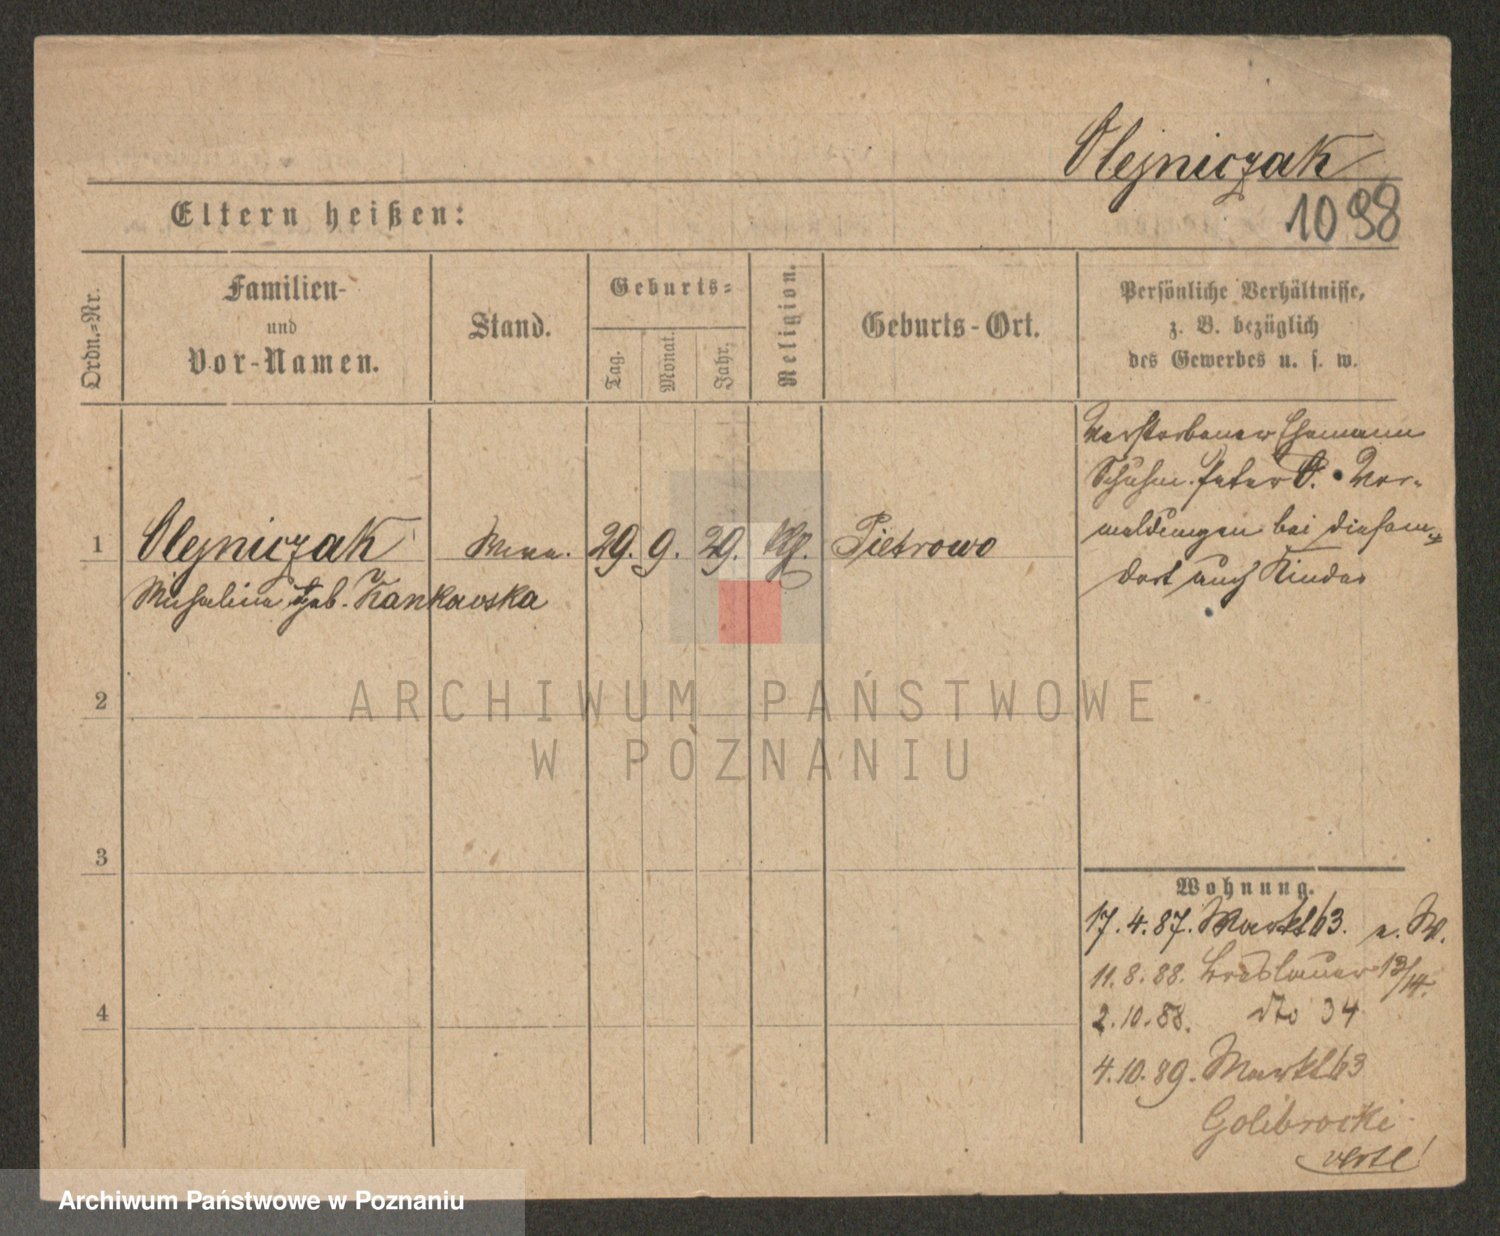 Olejniczak
1098
Eltern heißen:
Ordn.-Nr.
Familien-
und
Vor-Namen.
Stand.
Geburts-
Tag.
Monat.
Jahr.
Religion.
Geburts-Ort.
Persönliche Verhältnisse,
z. B. bezüglich
des Gewerbes u. s. w.
Verstorbener Ehemann
Schuhm. Peter O. Vor-
meldungen bei diesem
dort auch Kinder
1 Olejniczak 29. 9. 29. Pietrowo
geb.
2
3
4
ARCHIWUM PAŃSTWOWE
W POZNANIU
Wohnung.
17. 4. 87. Markt 63. a. W.
11. 8. 88. Breslauer 13/14.
2. 10. 88. dto 34
4. 10. 89. Markt 63
verte!
Archiwum Państwowe w Poznaniu